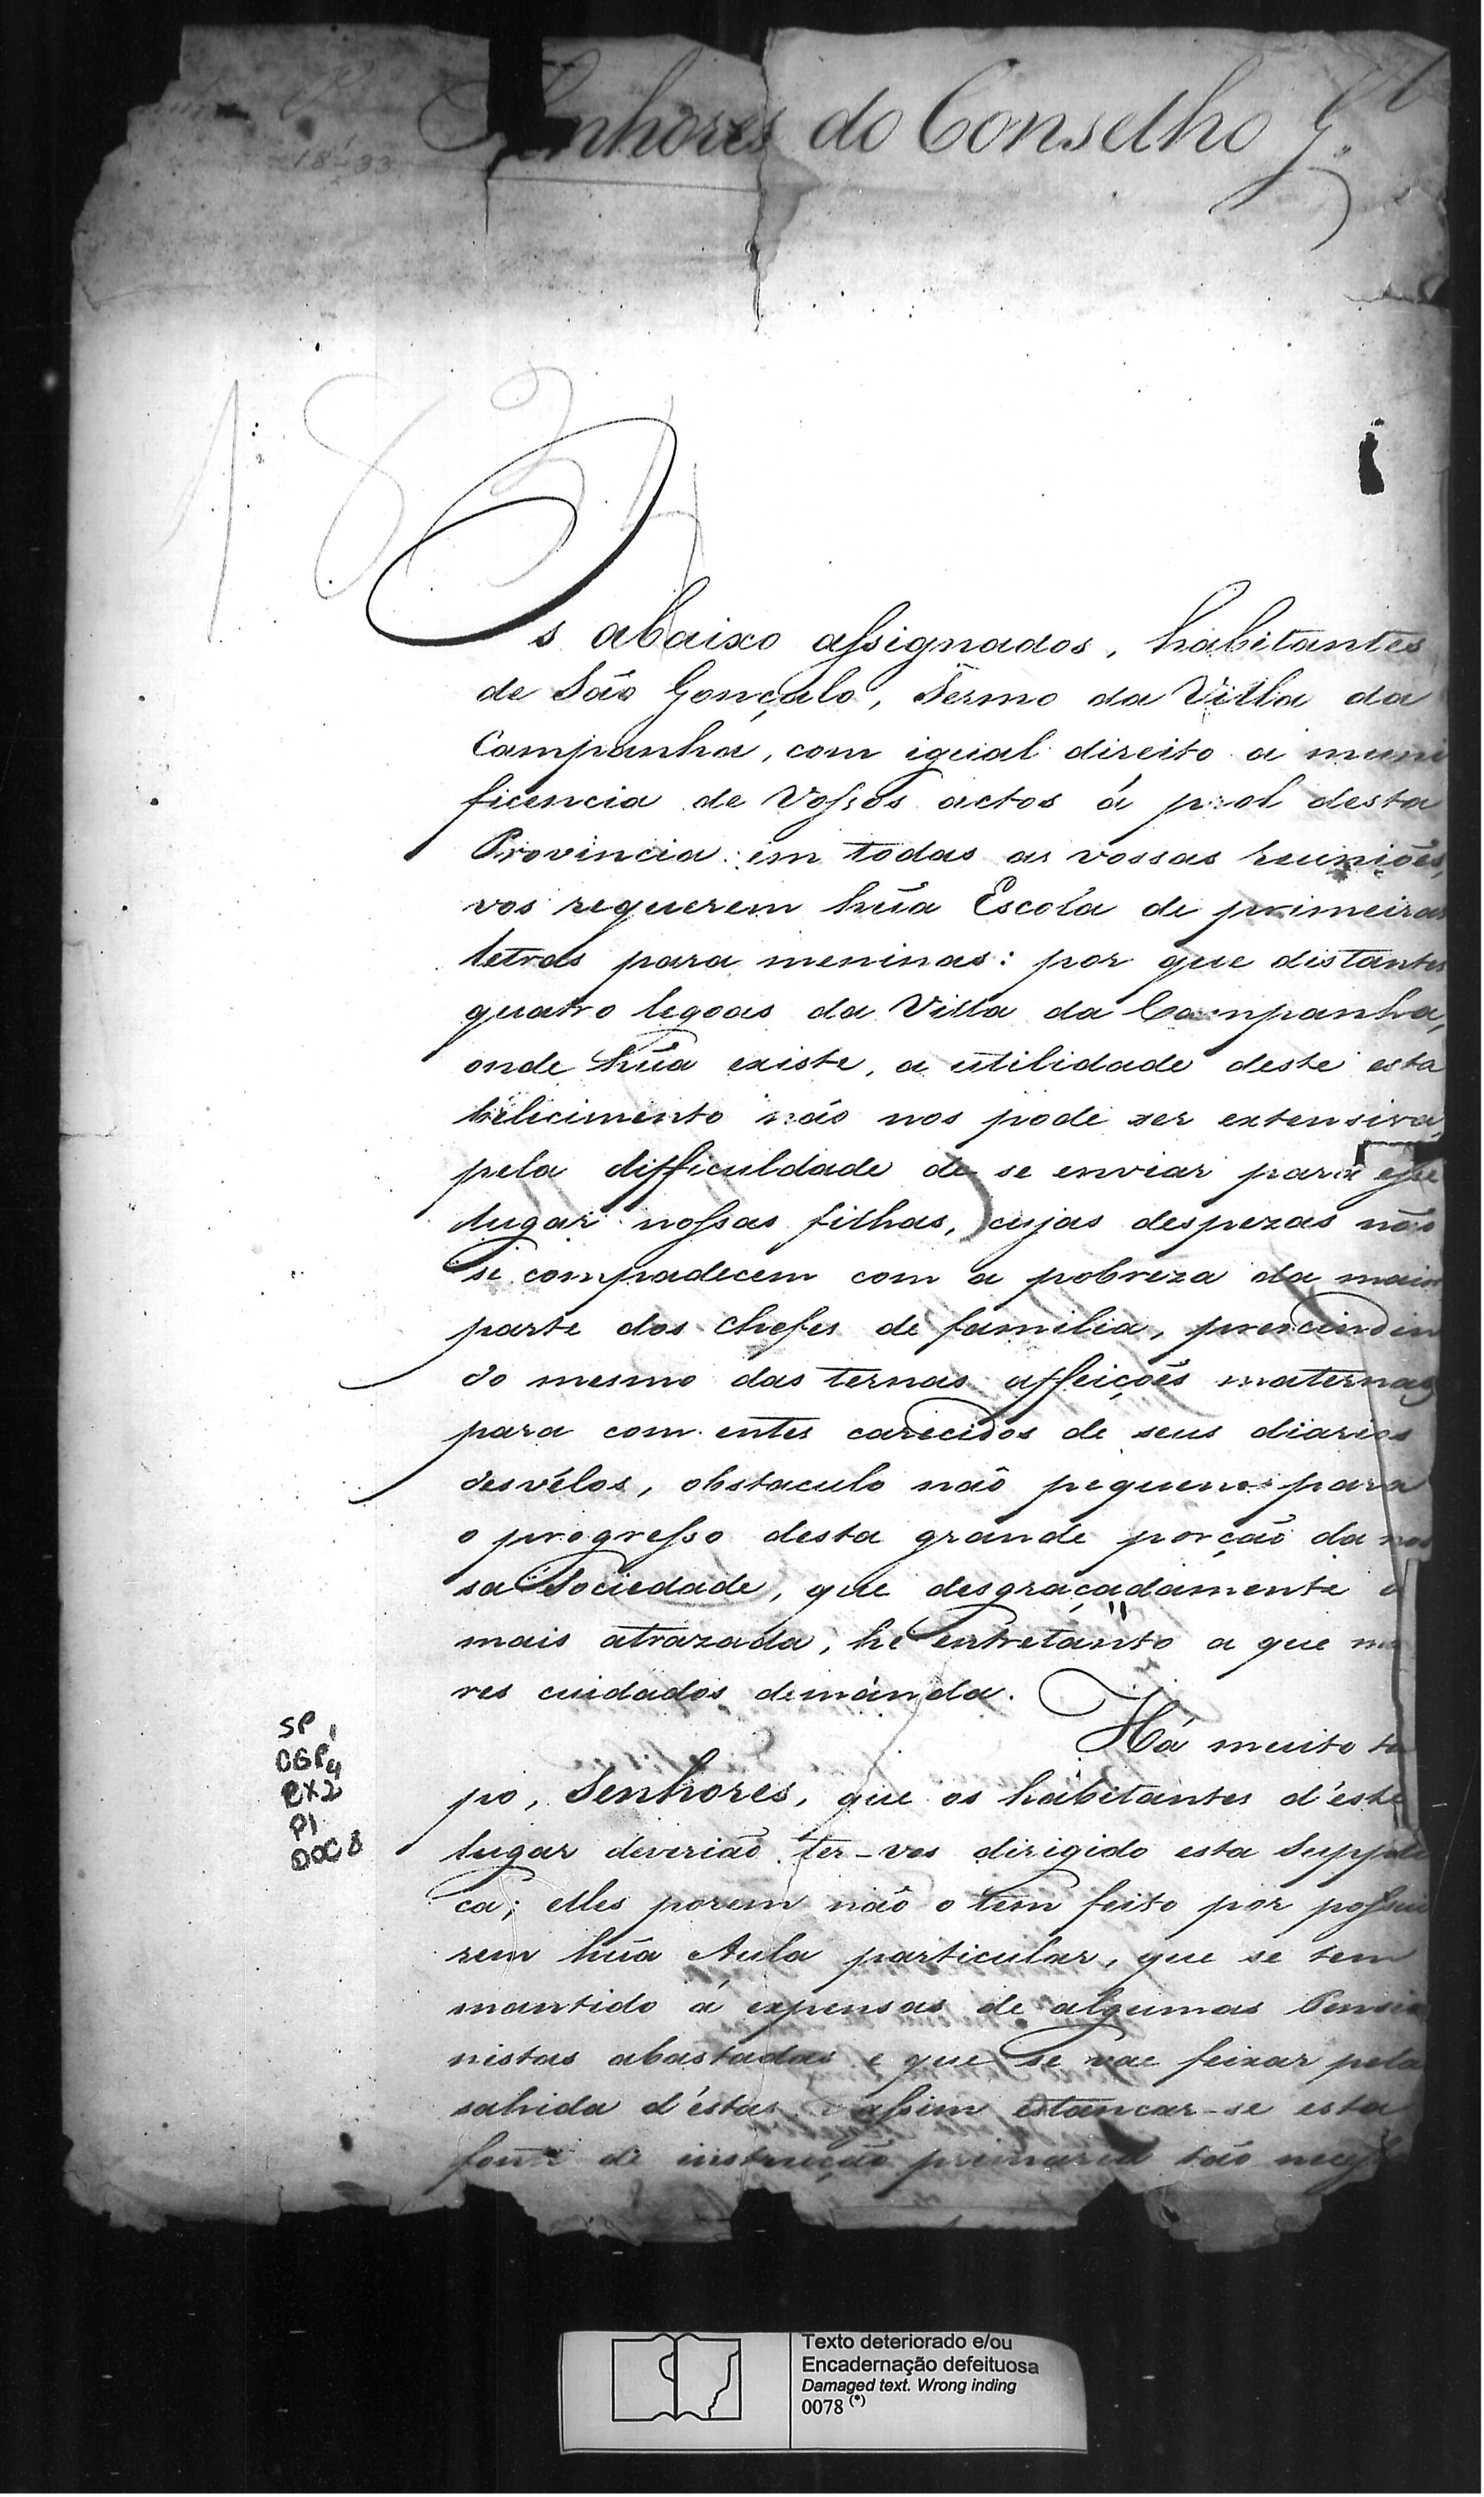 Senhores do Conselho G.
1833
1834
Os abaixo assignados, habitantes
de São Gonçalo, Termo da Villa da
Campanha, com igual direito a muni
ficencia de Vossos actos á prol desta
Provincia: em todas as vossas reuniões,
vos requerem hũa Escola de primeiras
letras para meninas: por que distantes
quatro legoas da Villa da Campanha,
onde hũa existe, a utilidade deste esta
belicimento não nos pode ser extensiva,
pela difficuldade de se enviar para esse
lugar nossas filhas, cujas despezas não
se compadecem com a pobreza da maior
parte dos chefes de familia, prescindin
do mesmo das ternas affeições maternas
para com entes carecidos de seus diarios
desvélos, obstaculo não pequeno para
o progresso desta grande porção da nos
sa Sociedade, que desgraçadamente a
mais atrazada, he entretanto a que
res cuidados demanda.
Há muito te
po, Senhores, que os habitantes d'este
lugar deverião ter-vos dirigido esta Suppli
ca; elles porem não o tem feito por possui
rem hũa Aula particular, que se tem
mantido á expensas de algumas Pensio
nistas abastadas e que se vae feixar pela
sahida d'éstas assim estancar-se esta
fonte de instrucção primaria tão
SP 1
CGP4
CX2
P1
DOC 8
Texto deteriorado e/ou
Encadernação defeituosa
Damaged text. Wrong inding
0078 (*)